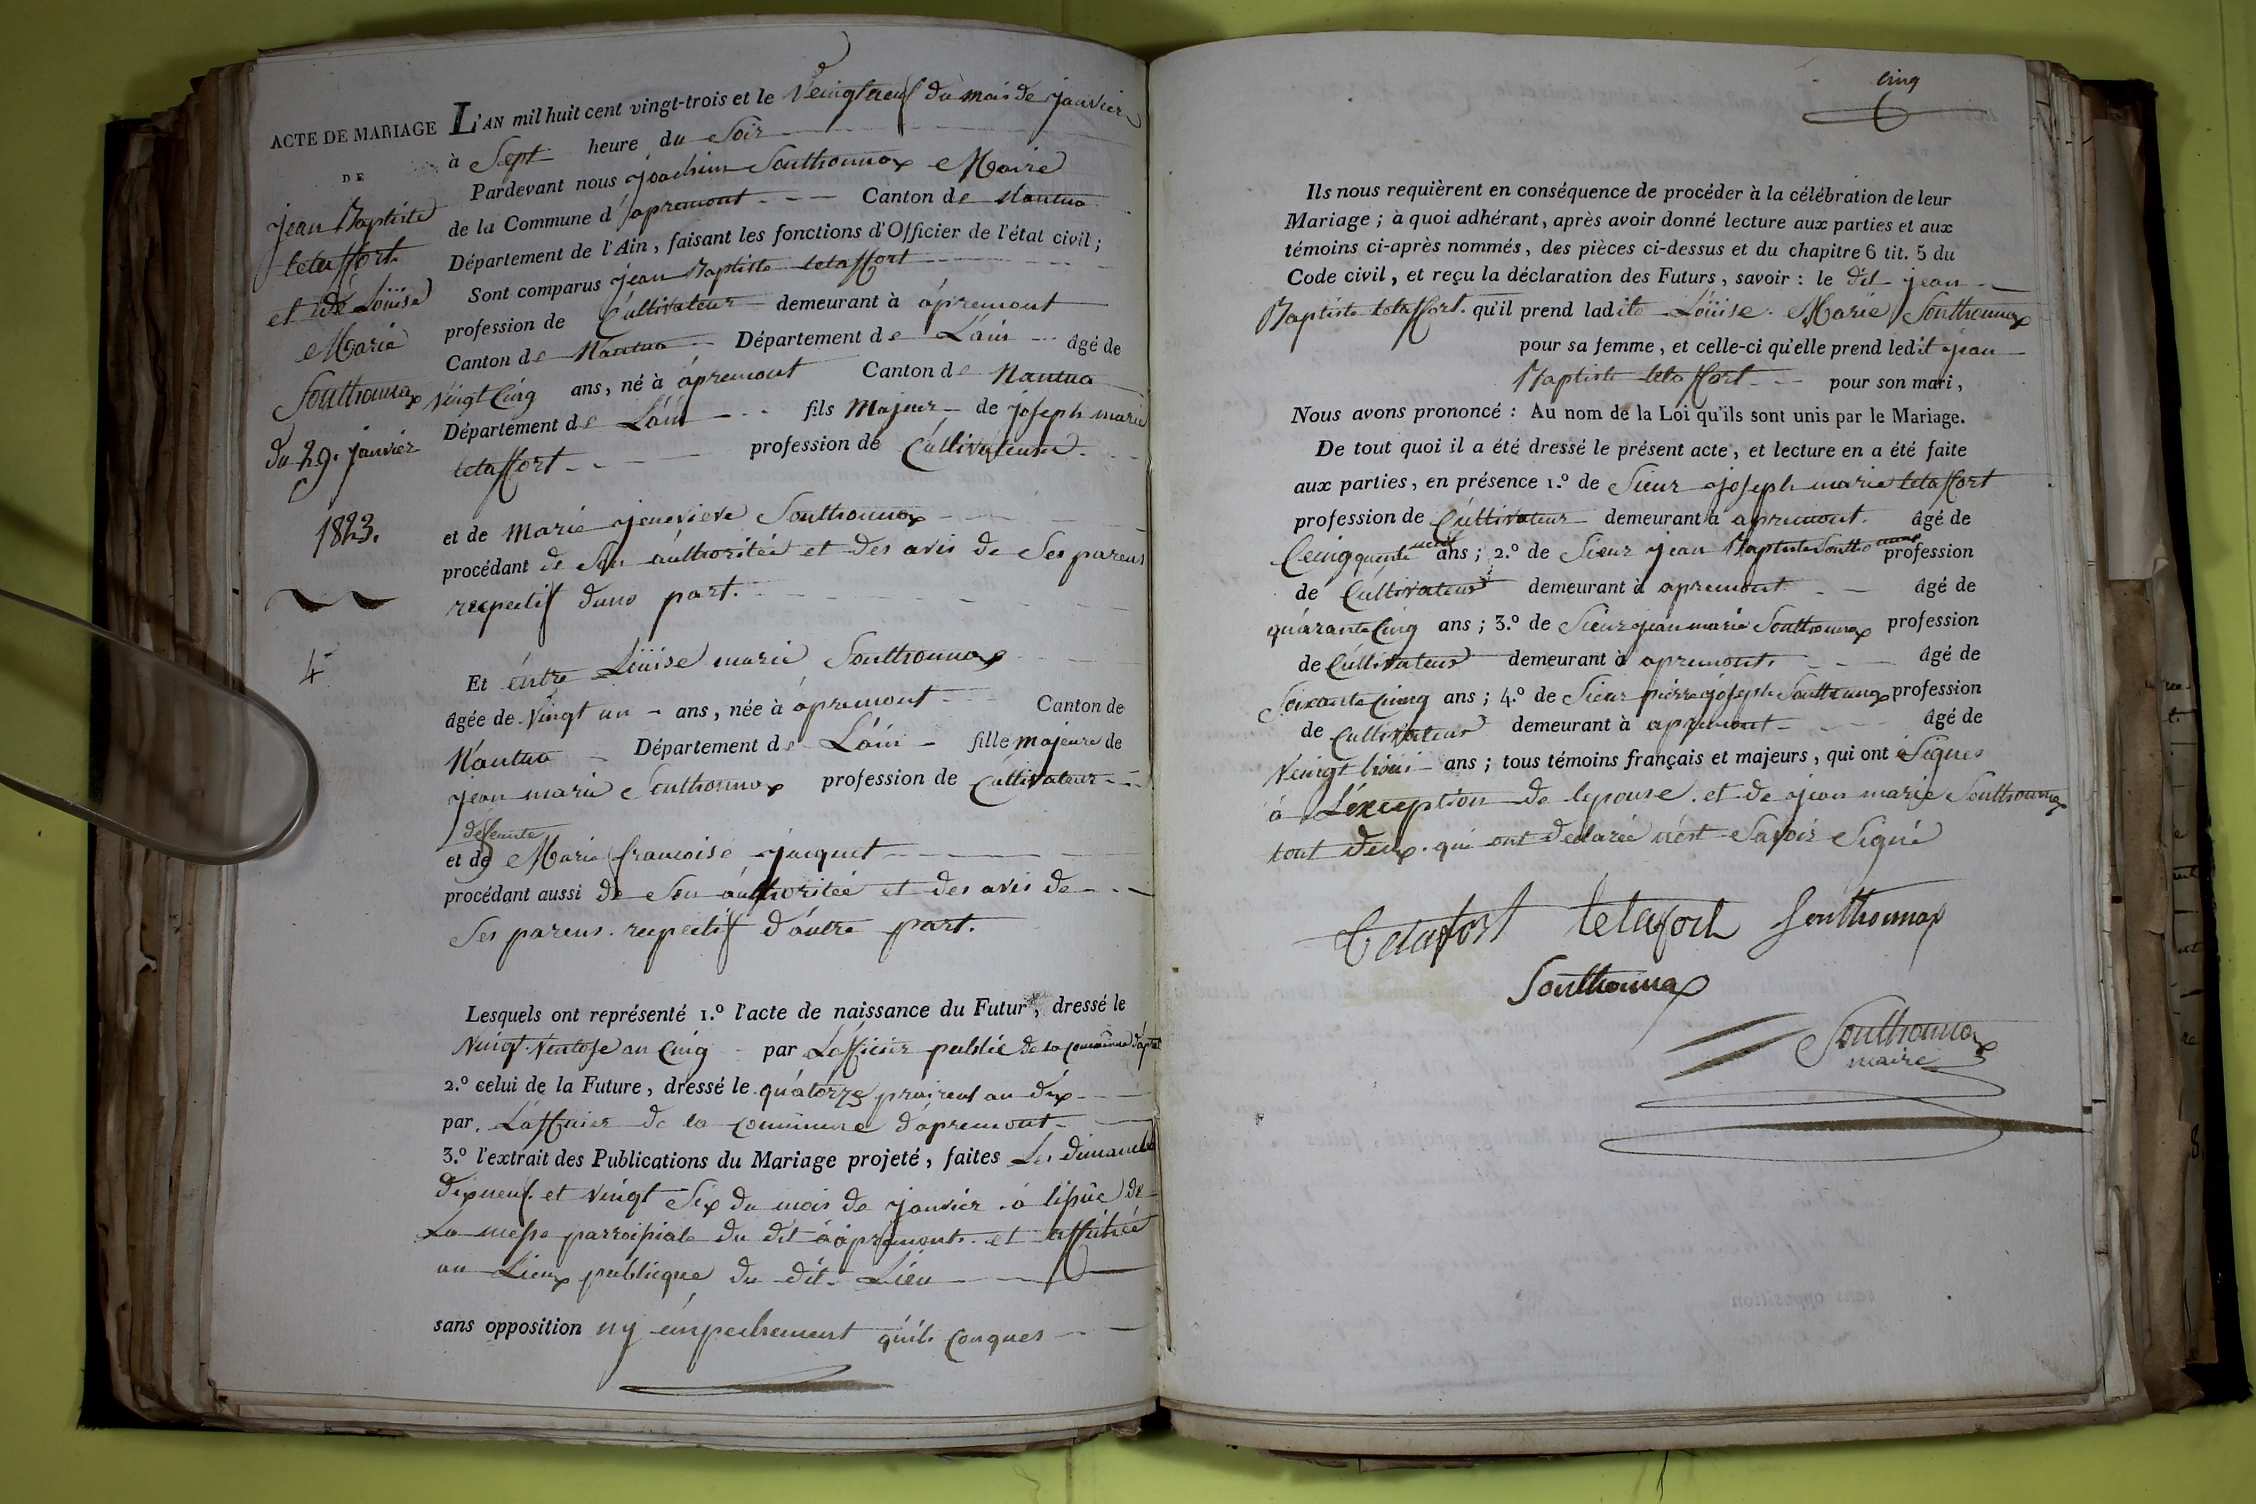 ACTE DE MARIAGE
DE
jean Baptiste
letaffort
et dé Loüise
Marie
Southonnax
du 29. janvier
1823.
4
L'AN mil huit cent vingt-trois et le Veingtneuf du mois de janvier
à Sept heure du Soir
Pardevant nous joachim Southonnax Maire
de la Commune d'apremont Canton de Nantua
Département de l'Ain, faisant les fonctions d'Officier de l'état civil;
Sont comparus jean Baptiste letaffort
profession de Cultivateur demeurant à apremont
Canton de Nantua Département de L'ain âgé de
vingt Cinq ans, né à apremont Canton de Nantua
Département de L'ain fils Majeur de joseph marie
letaffort profession de Cultivateur
et de Marie jenevieve Southonnax
procédant de Son authoritée et des avis de Ses parens
respectif dune part.
Et éntre Loüise marie Southonnax
âgée de vingt un ans, née à apremont Canton de
Nantua Département de L'ain fille majeure de
jean marie Southonnax profession de Cultivateur
défeunte
et de Marie francoise jacquet
procédant aussi de Son authoritée et des avis de
Ses parens respectif d'autre part.
Lesquels ont représenté 1.º l'acte de naissance du Futur, dressé le
vingt ventose an Cinq par Lofficier public de la commune d'apremt
2.º celui de la Future, dressé le quatorze prairial an dix
par Lofficier de la commune d'apremont
3.º l'extrait des Publications du Mariage projeté, faites Les dimanche
dixneuf et vingt Six du mois de janvier à lissue de
La messe parroissiale du dit apremont et affichée
au Lieux publique du dit Lieu
sans opposition ny émpechement quils conques
Cinq
Ils nous requièrent en conséquence de procéder à la célébration de leur
Mariage; à quoi adhérant, après avoir donné lecture aux parties et aux
témoins ci-après nommés, des pièces ci-dessus et du chapitre 6 tit. 5 du
Code civil, et reçu la déclaration des Futurs, savoir: le dit jean
Baptiste letaffort qu'il prend ladite Loüise Marie Southonnax
pour sa femme, et celle-ci qu'elle prend ledit jean
Baptiste letaffort pour son mari,
Nous avons prononcé: Au nom de la Loi qu'ils sont unis par le Mariage.
De tout quoi il a été dressé le présent acte, et lecture en a été faite
aux parties, en présence 1.º de Sieur joseph marie letaffort
profession de Cultivateur demeurant à apremont. âgé de
Ceinqquante neuf ans; 2.º de Sieur jean Baptiste Southonnax profession
de Cultivateur demeurant à apremont âgé de
quarante Cinq ans; 3.º de Sieur jean marie Southonnax profession
de Cultivateur demeurant à apremont âgé de
Soixante Cinq ans; 4.º de Sieur pierre joseph Southonnax profession
de Cultivateur demeurant à apremont âgé de
Veingt trois ans; tous témoins français et majeurs, qui ont Signés
à L'éxception de lepouse et de jean marie Southonnax
tout deux qui ont declarée n'est Savoir Signé
letafort letafort Southonnax
Southonnax
Southonnax
maire